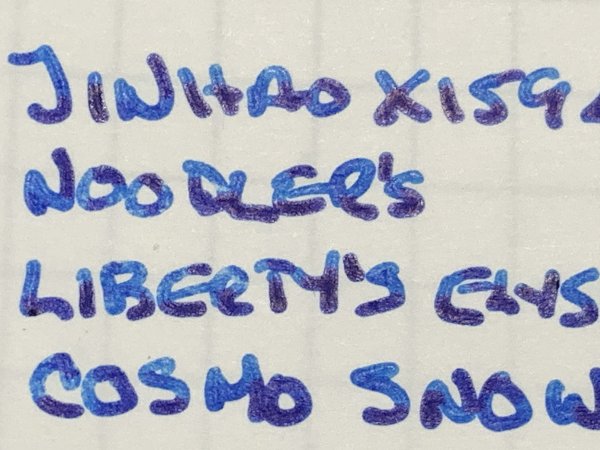 JINHAO X159
NOODLER'S
LIBERTY'S ELYS
COSMO SNOW